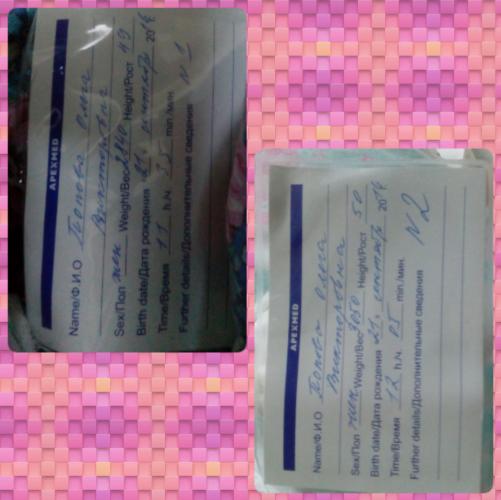 APEXMED
Name/Ф.И.О Попова Ольга
Викторовна
Sex/Пол жен Weight/Вес 2840 Height/Рост 49
Birth date/Дата рождения 21. октябрь 2014
Time/Время 11 h./ч. 55 min./мин.
Further details/Дополнительные сведения
N 1
APEXMED
Name/Ф.И.О Попова Ольга
Викторовна
Sex/Пол жен Weight/Вес 3050 Height/Рост 50
Birth date/Дата рождения 21. октябрь 2014
Time/Время 12 h./ч. 05 min./мин.
Further details/Дополнительные сведения
N 2